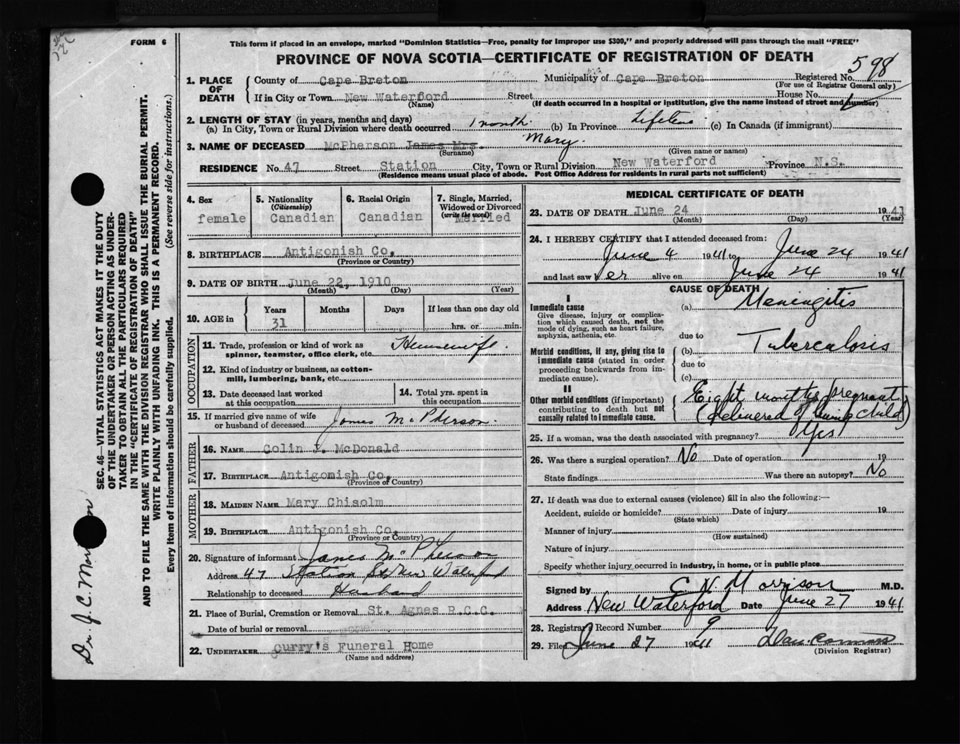 FORM 6
This form if placed in an envelope, marked "Dominion Statistics—Free, penalty for improper use $300," and properly addressed will pass through the mail "FREE"
PROVINCE OF NOVA SCOTIA—CERTIFICATE OF REGISTRATION OF DEATH
598
1. PLACE OF DEATH
County of Cape Breton Municipality of Cape Breton Registered No.
(For use of Registrar General only)
If in City or Town New Waterford Street House No.
(Name) (If death occurred in a hospital or institution, give the name instead of street and number)
2. LENGTH OF STAY (in years, months and days)
(a) In City, Town or Rural Division where death occurred 1 month. (b) In Province Lifetime (c) In Canada (if immigrant)
3. NAME OF DECEASED McPherson James Mrs. Mary.
(Surname) (Given name or names)
RESIDENCE No. 47 Street Station City, Town or Rural Division New Waterford Province N.S.
(Residence means usual place of abode. Post Office Address for residents in rural parts not sufficient)
4. Sex
female
5. Nationality
(Citizenship)
Canadian
6. Racial Origin
Canadian
7. Single, Married, Widowed or Divorced
(write the word)
Married
8. BIRTHPLACE Antigonish Co,
(Province or Country)
9. DATE OF BIRTH June 22, 1910
(Month) (Day) (Year)
10. AGE in
Years Months Days If less than one day old
31 hrs. or min.
OCCUPATION
11. Trade, profession or kind of work as spinner, teamster, office clerk, etc. Housewife.
12. Kind of industry or business, as cotton-mill, lumbering, bank, etc.
13. Date deceased last worked at this occupation
14. Total yrs. spent in this occupation
15. If married give name of wife or husband of deceased James McPherson.
FATHER
16. Name Colin J. McDonald
17. Birthplace Antigonish Co,
(Province or Country)
MOTHER
18. Maiden Name Mary Chisolm
19. Birthplace Antigonish Co,
(Province or Country)
20. Signature of informant James McPherson
Address 47 Station St New Waterford
Relationship to deceased Husband
21. Place of Burial, Cremation or Removal St. Agnes R.C.C.
Date of burial or removal
22. Undertaker Curry's Funeral Home
(Name and address)
MEDICAL CERTIFICATE OF DEATH
23. DATE OF DEATH June 24 1941
(Month) (Day) (Year)
24. I HEREBY CERTIFY that I attended deceased from:
June 4 1941 to June 24 1941
and last saw her alive on June 24 1941
CAUSE OF DEATH
I
Immediate cause
Give disease, injury or complication which caused death, not the mode of dying, such as heart failure, asphyxia, asthenia, etc.
(a) Meningitis
due to
Morbid conditions, if any, giving rise to immediate cause (stated in order proceeding backwards from immediate cause).
(b) Tuberculosis
due to
(c)
II
Other morbid conditions (if important) contributing to death but not causally related to immediate cause.
Eight months pregnant
(delivered of living child)
25. If a woman, was the death associated with pregnancy? Yes
26. Was there a surgical operation? No Date of operation 19
State findings Was there an autopsy? No
27. If death was due to external causes (violence) fill in also the following:—
Accident, suicide or homicide? Date of injury 19
(State which)
Manner of injury
(How sustained)
Nature of injury
Specify whether injury occurred in industry, in home, or in public place
Signed by C. N. Morrison M.D.
Address New Waterford Date June 27 1941
28. Registrar Record Number 9
29. Filed June 27 1941
(Division Registrar)
SEC. 46—VITAL STATISTICS ACT MAKES IT THE DUTY
OF THE UNDERTAKER OR PERSON ACTING AS UNDER-
TAKER TO OBTAIN ALL THE PARTICULARS REQUIRED
IN THE "CERTIFICATE OF REGISTRATION OF DEATH"
AND TO FILE THE SAME WITH THE DIVISION REGISTRAR WHO SHALL ISSUE THE BURIAL PERMIT.
WRITE PLAINLY WITH UNFADING INK. THIS IS A PERMANENT RECORD.
Every item of information should be carefully supplied. (See reverse side for instructions.)
Dr. J. C. Morrison